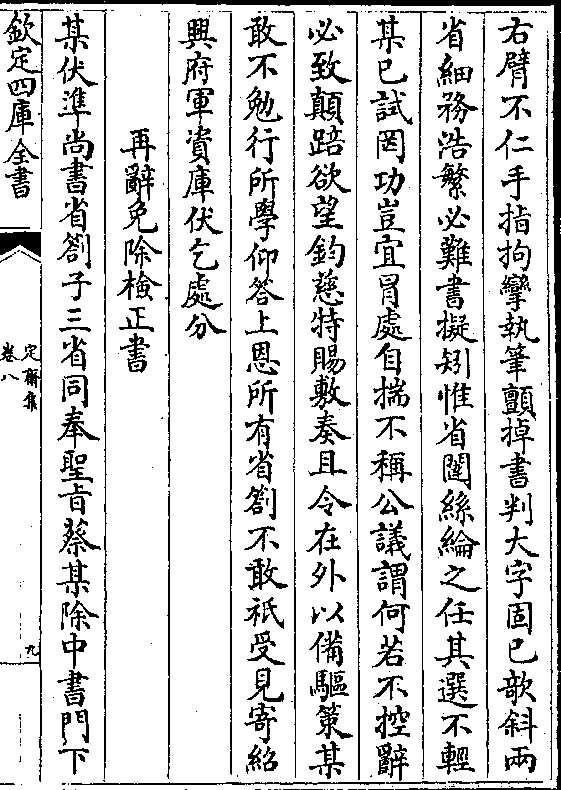 右臂不仁手指拘攣執筆顫掉書判大字固已欹斜兩
省細務浩繁必難書擬矧惟省闥絲綸之任其選不輕
某已試罔功豈宜冐處自揣不稱公議謂何若不控辭
必致顛踣欲望鈞慈特賜敷奏且令在外以備驅策某
敢不勉行所學仰答上恩所有省劄不敢祇受見寄紹
興府軍資庫伏乞處分
再辭免除檢正書
某伏準尚書省劄子三省同奉聖㫖蔡某除中書門下
欽定四庫全書
定齋集
卷八
九